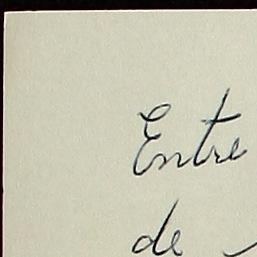 Entre
de